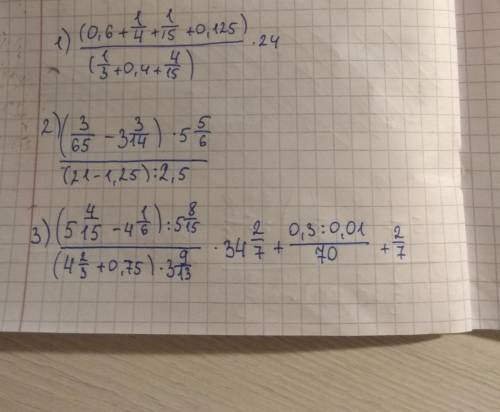 1) (0,6 + 1/4 + 1/15 + 0,125) / (1/3 + 0,4 + 4/15) · 24
2) (3/65 - 3 3/14) · 5 5/6 / (21 - 1,25) : 2,5
3) (5 4/15 - 4 1/6) : 5 8/15 / (4 2/3 + 0,75) · 3 9/13 · 34 2/7 + 0,3 : 0,01 / 70 + 2/7